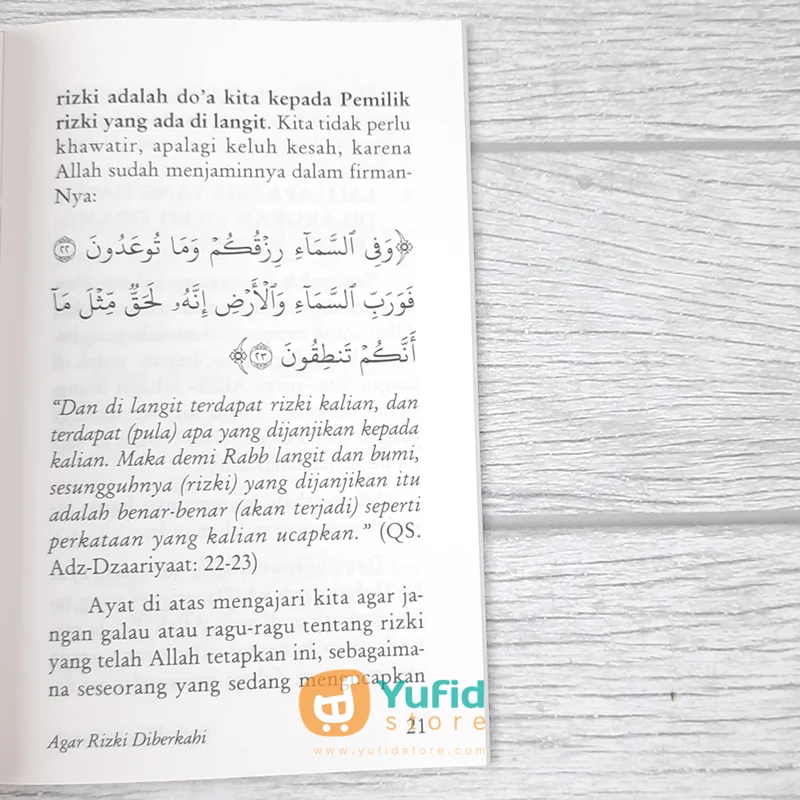 rizki adalah do'a kita kepada Pemilik
rizki yang ada di langit. Kita tidak perlu
khawatir, apalagi keluh kesah, karena
Allah sudah menjaminnya dalam firman-
Nya:
﴿وَفِى ٱلسَّمَآءِ رِزْقُكُمْ وَمَا تُوعَدُونَ ۝٢٢
فَوَرَبِّ ٱلسَّمَآءِ وَٱلْأَرْضِ إِنَّهُۥ لَحَقٌّ مِّثْلَ مَآ
أَنَّكُمْ تَنطِقُونَ ۝٢٣﴾
"Dan di langit terdapat rizki kalian, dan
terdapat (pula) apa yang dijanjikan kepada
kalian. Maka demi Rabb langit dan bumi,
sesungguhnya (rizki) yang dijanjikan itu
adalah benar-benar (akan terjadi) seperti
perkataan yang kalian ucapkan." (QS.
Adz-Dzaariyaat: 22-23)
Ayat di atas mengajari kita agar ja-
ngan galau atau ragu-ragu tentang rizki
yang telah Allah tetapkan ini, sebagaima-
na seseorang yang sedang mengucapkan
Agar Rizki Diberkahi
21
Yufid
store
www.yufidstore.com